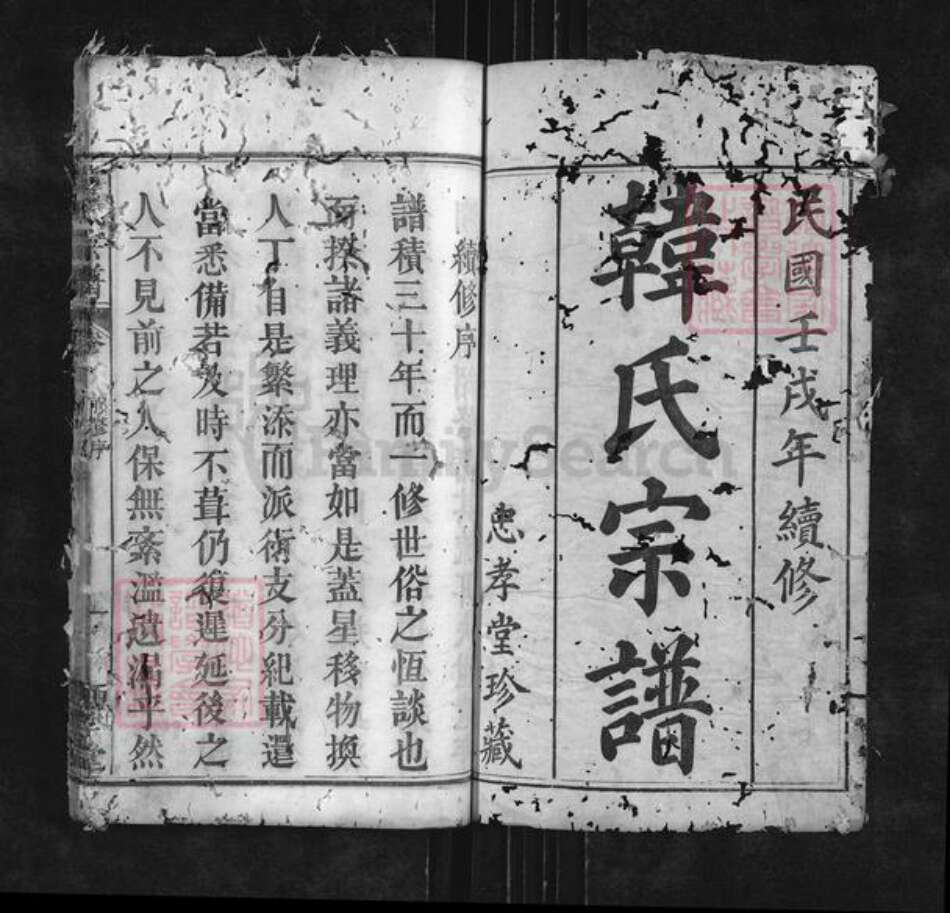 民國壬戌年續修
韓氏宗譜
忠孝堂珍藏
續修序
譜積三十年而一修世俗之恆談也
而揆諸義理亦當如是蓋星移物換
人丁自是繁添而派衍支分紀載還
當悉備若及時不葺仍復遲延後之
人不見前之人保無紊濫遺漏乎然
FamilySearch